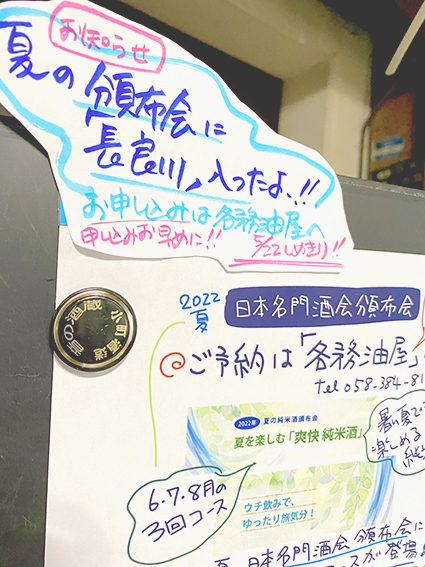 お知らせ
夏の頒布会に
「長良川」入ったよ、!!
お申し込みは各務油屋へ
申し込みお早めに!! 5/22しめきり!!
2022
夏
日本名門酒会頒布会
ご予約は「各務油屋」
tel 058-384-81
2022年 夏の純米酒頒布会
夏を楽しむ「爽快 純米酒」
暑い夏で
楽しめる
6.7.8月の
3回コース
ウチ飲みで、
ゆったり旅気分!
夏 日本名門酒会 頒布会に
スが登場
小町酒造
音の酒蔵